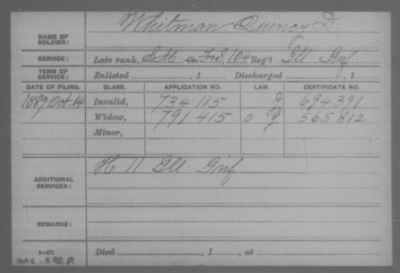 NAME OF SOLDIER: Whitman Quincy D
SERVICE: Late rank, Reg't Ill Inf
TERM OF SERVICE: Enlisted , 1 Discharged , 1
DATE OF FILING. CLASS. APPLICATION NO. LAW. CERTIFICATE NO.
1889 Oct 14 Invalid, 734 115 694 391
Widow, 791 415 O G 565 812
Minor,
ADDITIONAL SERVICES: H 11 Ill Inf
REMARKS:
Died , 1 , at